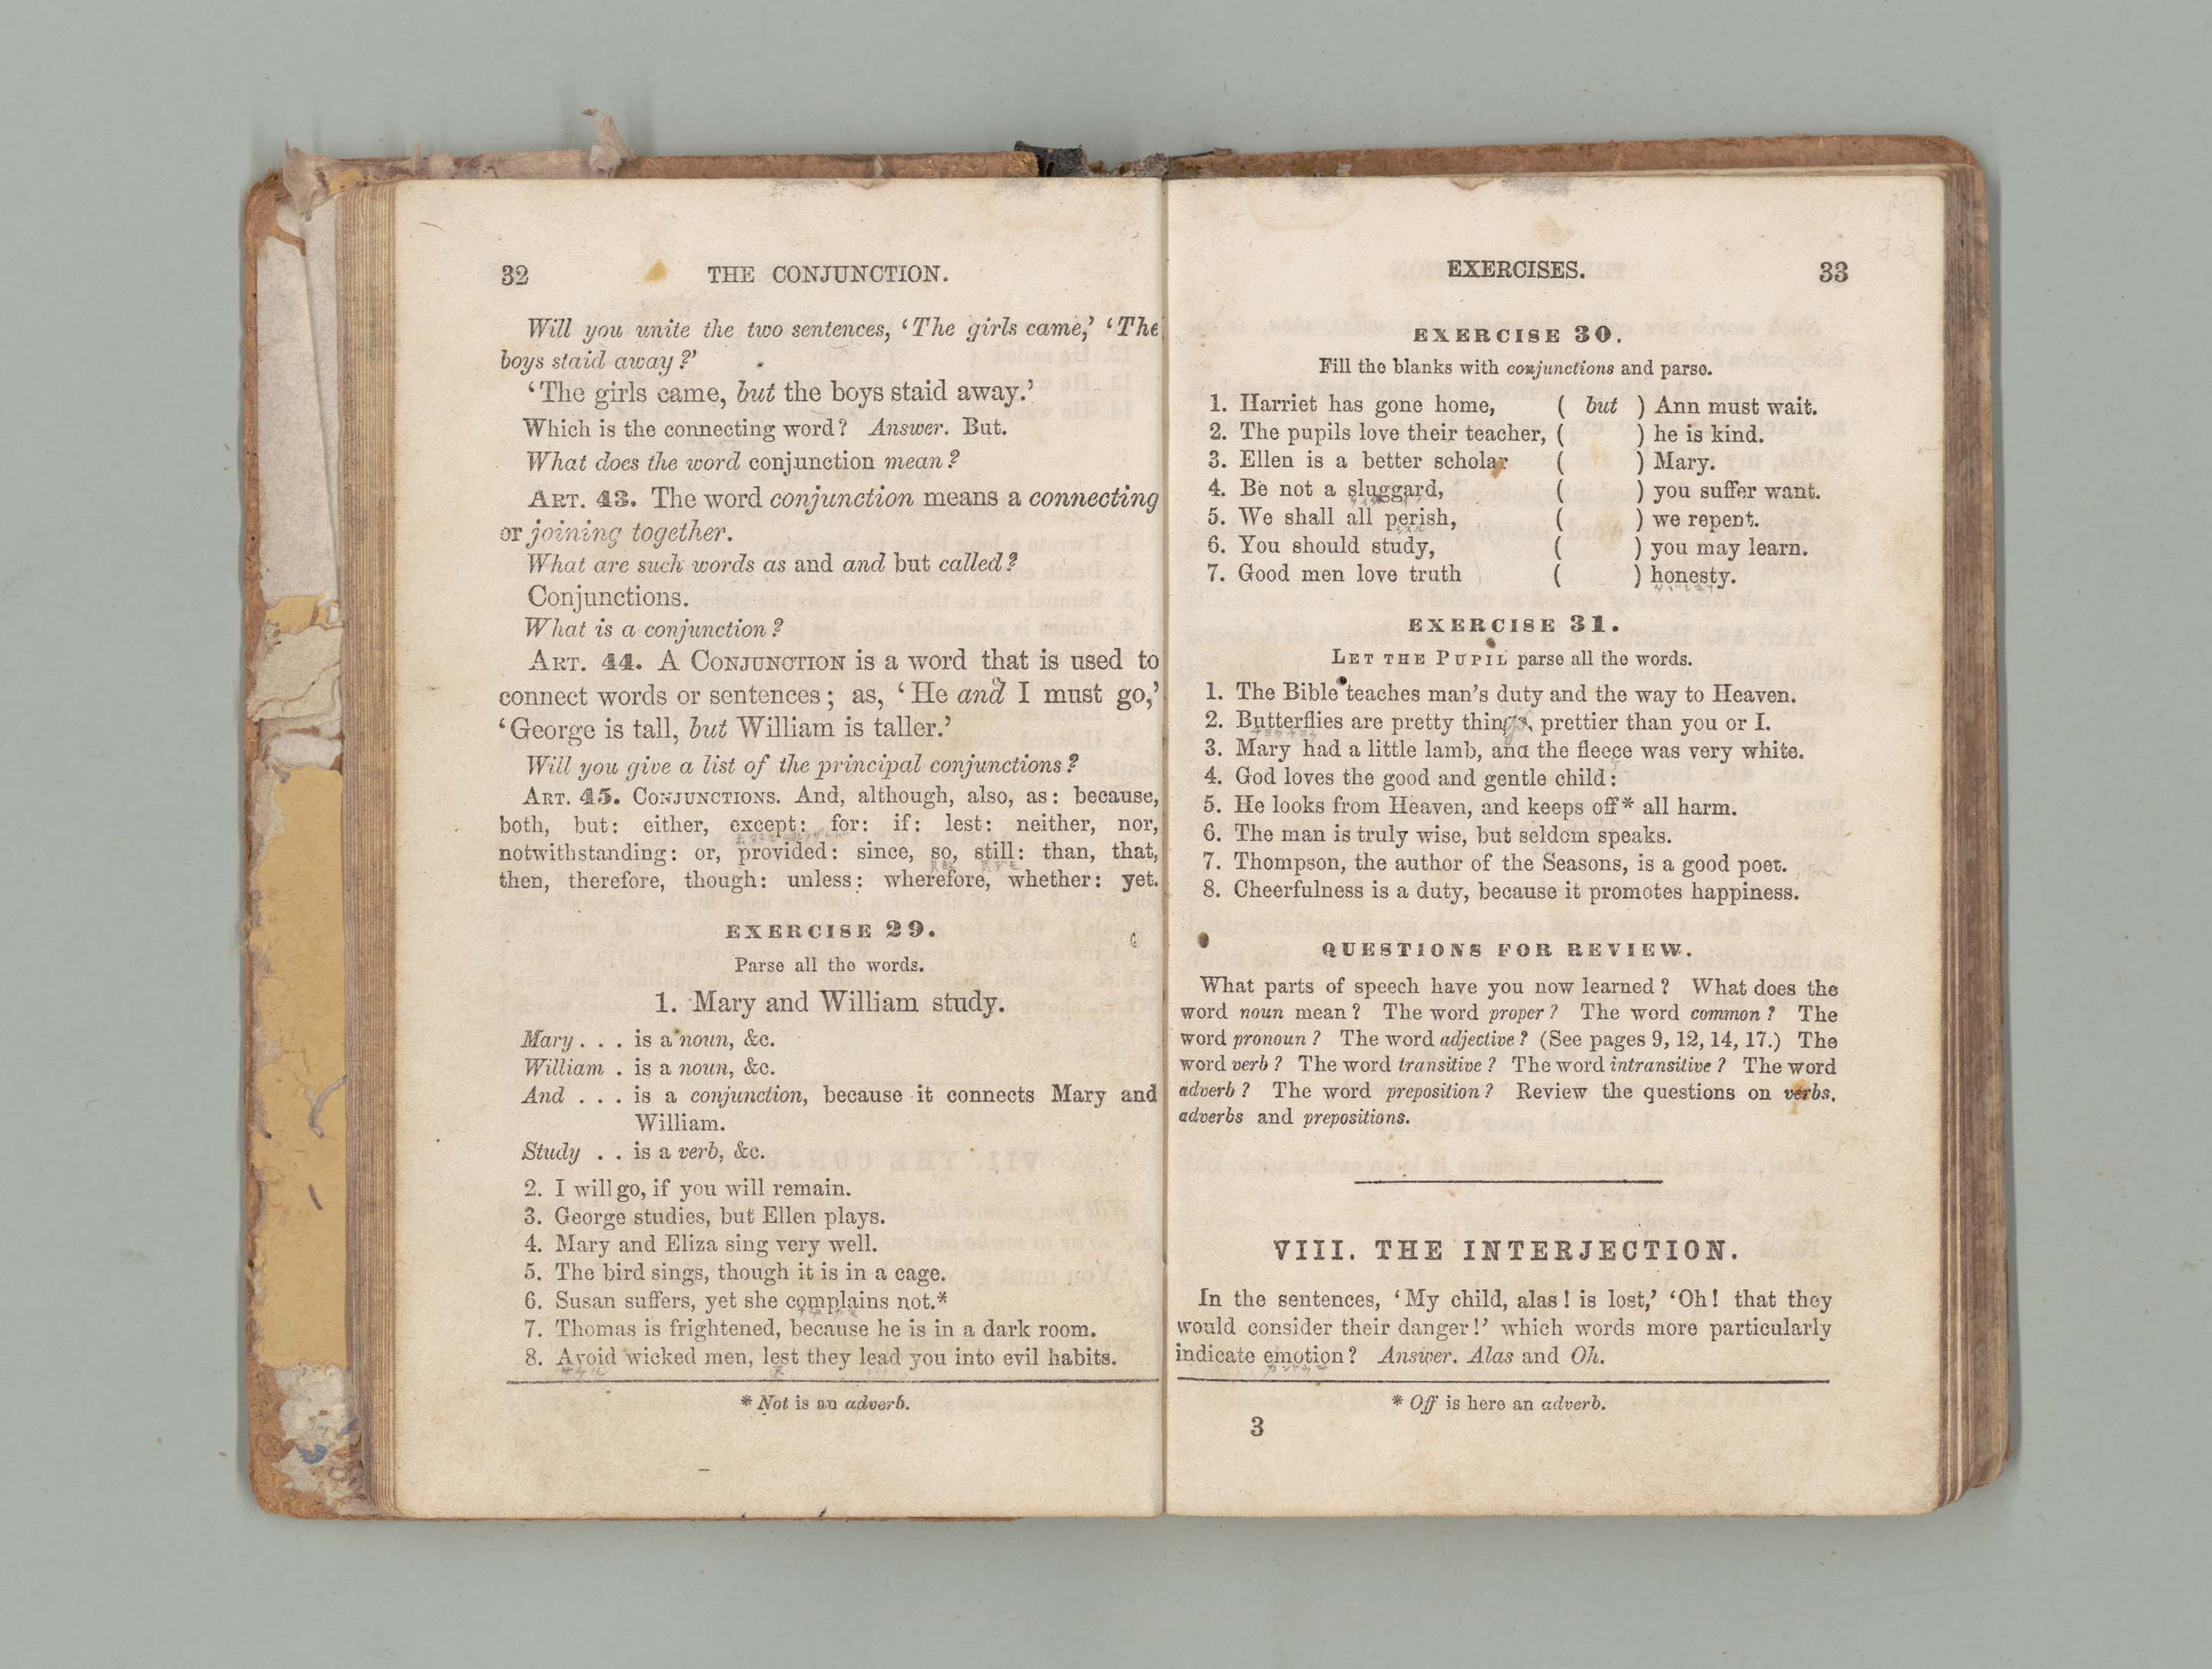 32 THE CONJUNCTION.
Will you unite the two sentences, ‘The girls came,’ ‘The
boys staid away?’
‘The girls came, but the boys staid away.’
Which is the connecting word? Answer. But.
What does the word conjunction mean?
ART. 43. The word conjunction means a connecting
or joining together.
What are such words as and and but called?
Conjunctions.
What is a conjunction?
ART. 44. A CONJUNCTION is a word that is used to
connect words or sentences; as, ‘He and I must go,’
‘George is tall, but William is taller.’
Will you give a list of the principal conjunctions?
ART. 45. CONJUNCTIONS. And, although, also, as: because,
both, but: either, except: for: if: lest: neither, nor,
notwithstanding: or, provided: since, so, still: than, that,
then, therefore, though: unless: wherefore, whether: yet.
EXERCISE 29.
Parse all the words.
1. Mary and William study.
Mary . . . is a noun, &c.
William . is a noun, &c.
And . . . is a conjunction, because it connects Mary and
William.
Study . . is a verb, &c.
2. I will go, if you will remain.
3. George studies, but Ellen plays.
4. Mary and Eliza sing very well.
5. The bird sings, though it is in a cage.
6. Susan suffers, yet she complains not.*
7. Thomas is frightened, because he is in a dark room.
8. Avoid wicked men, lest they lead you into evil habits.
* Not is an adverb.
EXERCISES. 33
EXERCISE 30.
Fill the blanks with conjunctions and parse.
1. Harriet has gone home, ( but ) Ann must wait.
2. The pupils love their teacher, ( ) he is kind.
3. Ellen is a better scholar ( ) Mary.
4. Be not a sluggard, ( ) you suffer want.
5. We shall all perish, ( ) we repent.
6. You should study, ( ) you may learn.
7. Good men love truth ( ) honesty.
EXERCISE 31.
LET THE PUPIL parse all the words.
1. The Bible teaches man’s duty and the way to Heaven.
2. Butterflies are pretty things, prettier than you or I.
3. Mary had a little lamb, and the fleece was very white.
4. God loves the good and gentle child:
5. He looks from Heaven, and keeps off* all harm.
6. The man is truly wise, but seldom speaks.
7. Thompson, the author of the Seasons, is a good poet.
8. Cheerfulness is a duty, because it promotes happiness.
QUESTIONS FOR REVIEW.
What parts of speech have you now learned? What does the
word noun mean? The word proper? The word common? The
word pronoun? The word adjective? (See pages 9, 12, 14, 17.) The
word verb? The word transitive? The word intransitive? The word
adverb? The word preposition? Review the questions on verbs,
adverbs and prepositions.
VIII. THE INTERJECTION.
In the sentences, ‘My child, alas! is lost,’ ‘Oh! that they
would consider their danger!’ which words more particularly
indicate emotion? Answer. Alas and Oh.
* Off is here an adverb.
3